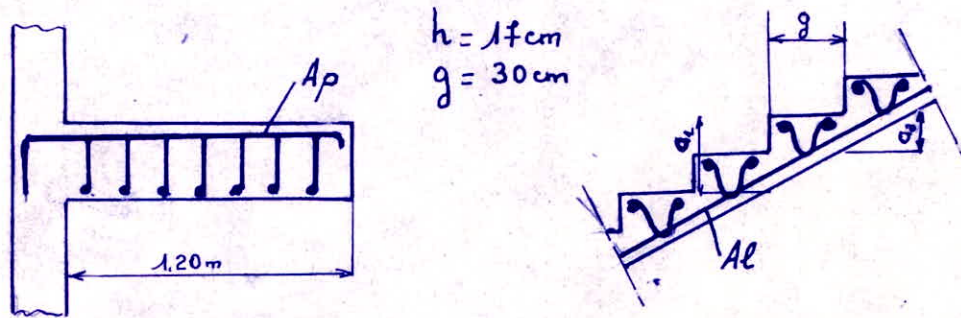 Ap
1.20m
h = 17cm
g = 30cm
g
Al